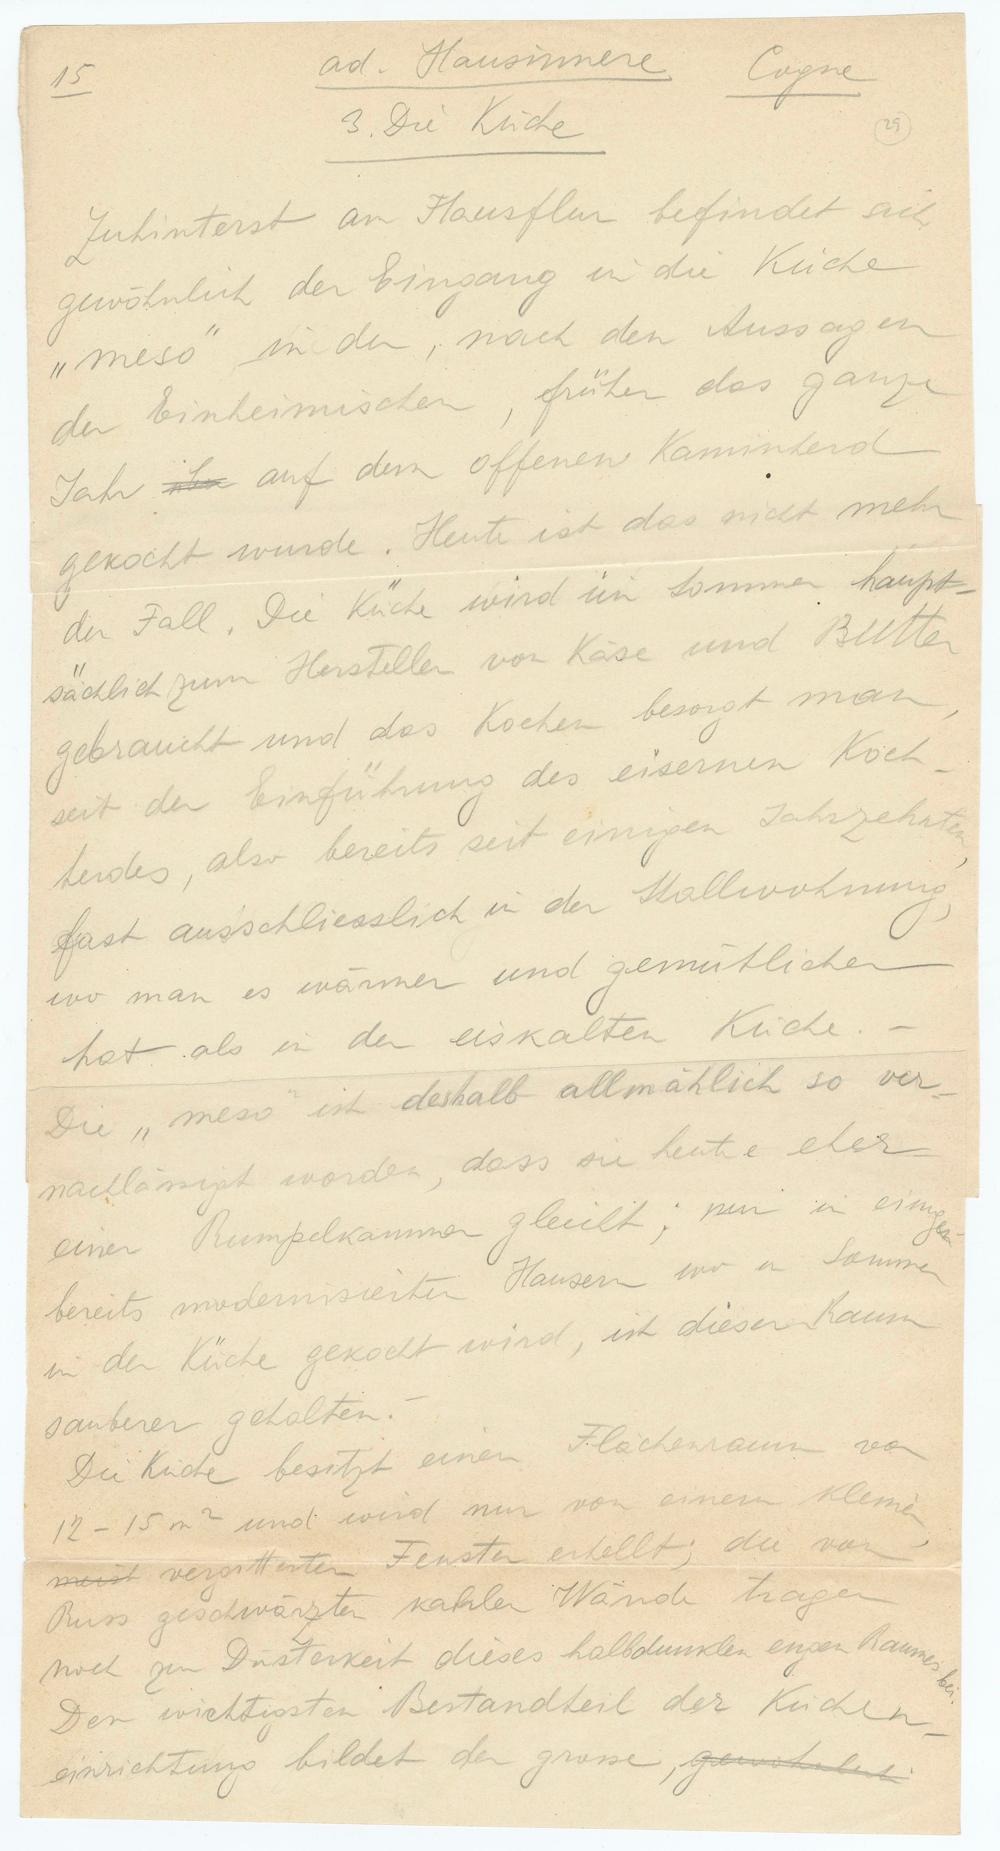 15 ad. Hausinnere Cogne
3. Die Küche 29
Zuhinterst am Hausflur befindet sich
gewöhnlich der Eingang in die Küche
„meso" in der, nach den Aussagen
der Einheimischen, früher das ganze
Jahr auf dem offenen Kaminherd
gekocht wurde. Heute ist das nicht mehr
der Fall. Die Küche wird im Sommer haupt-
sächlich zum Herstellen von Käse und Butter
gebraucht und das Kochen besorgt man,
seit der Einführung des eisernen Koch-
herdes, also bereits seit einigen Jahrzehnten,
fast ausschliesslich in der Stallwohnung,
wo man es wärmer und gemütlicher
hat als in der eiskalten Küche. –
Die „meso" ist deshalb allmählich so ver-
nachlässigt worden, dass sie heute eher
einer Rumpelkammer gleicht; nur in einigen
bereits modernisierten Häusern wo im Sommer
in der Küche gekocht wird, ist dieser Raum
sauberer gehalten. –
Die Küche besitzt einen Flächenraum von
12 – 15 m² und wird nur von einem kleinen,
meist vergitterten Fenster erhellt; die von
Russ geschwärzten kahlen Wände tragen
noch zur Düsterkeit dieses halbdunklen engen Raumes bei.
Den wichtigsten Bestandteil der Küchen-
einrichtung bildet der grosse, gewöhnlich